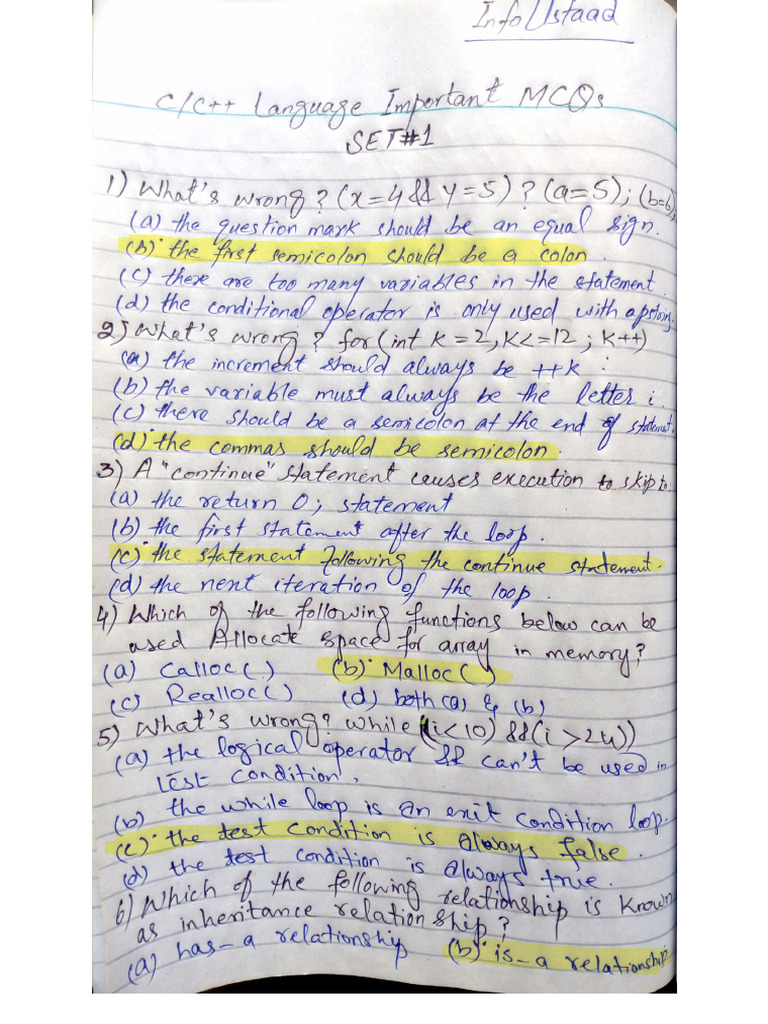 Info Ustaad
C/C++ Language Important MCQs
SET#1
1) What's wrong? (x=4 && y=5) ? (a=5); (b=6);
(a) the question mark should be an equal sign.
(b) the first semicolon should be a colon.
(c) there are too many variables in the statement.
(d) the conditional operator is only used with
2) What's wrong? for(int k=2, k<=12; k++)
(a) the increment should always be ++k.
(b) the variable must always be the letter i.
(c) there should be a semicolon at the end of statement.
(d) the commas should be semicolon.
3) A "continue" statement causes execution to skip to:
(a) the return 0; statement
(b) the first statement after the loop.
(c) the statement following the continue statement.
(d) the next iteration of the loop.
4) Which of the following functions below can be
used Allocate space for array in memory?
(a) Calloc() (b) Malloc()
(c) Realloc() (d) both (a) & (b)
5) What's wrong? while((i<10) &&(i>24))
(a) the logical operator && can't be used in
test condition.
(b) the while loop is an exit condition loop.
(c) the test condition is always false.
(d) the test condition is always true.
6) Which of the following relationship is known
as inheritance relation ship?
(a) has-a relationship (b) is-a relationship